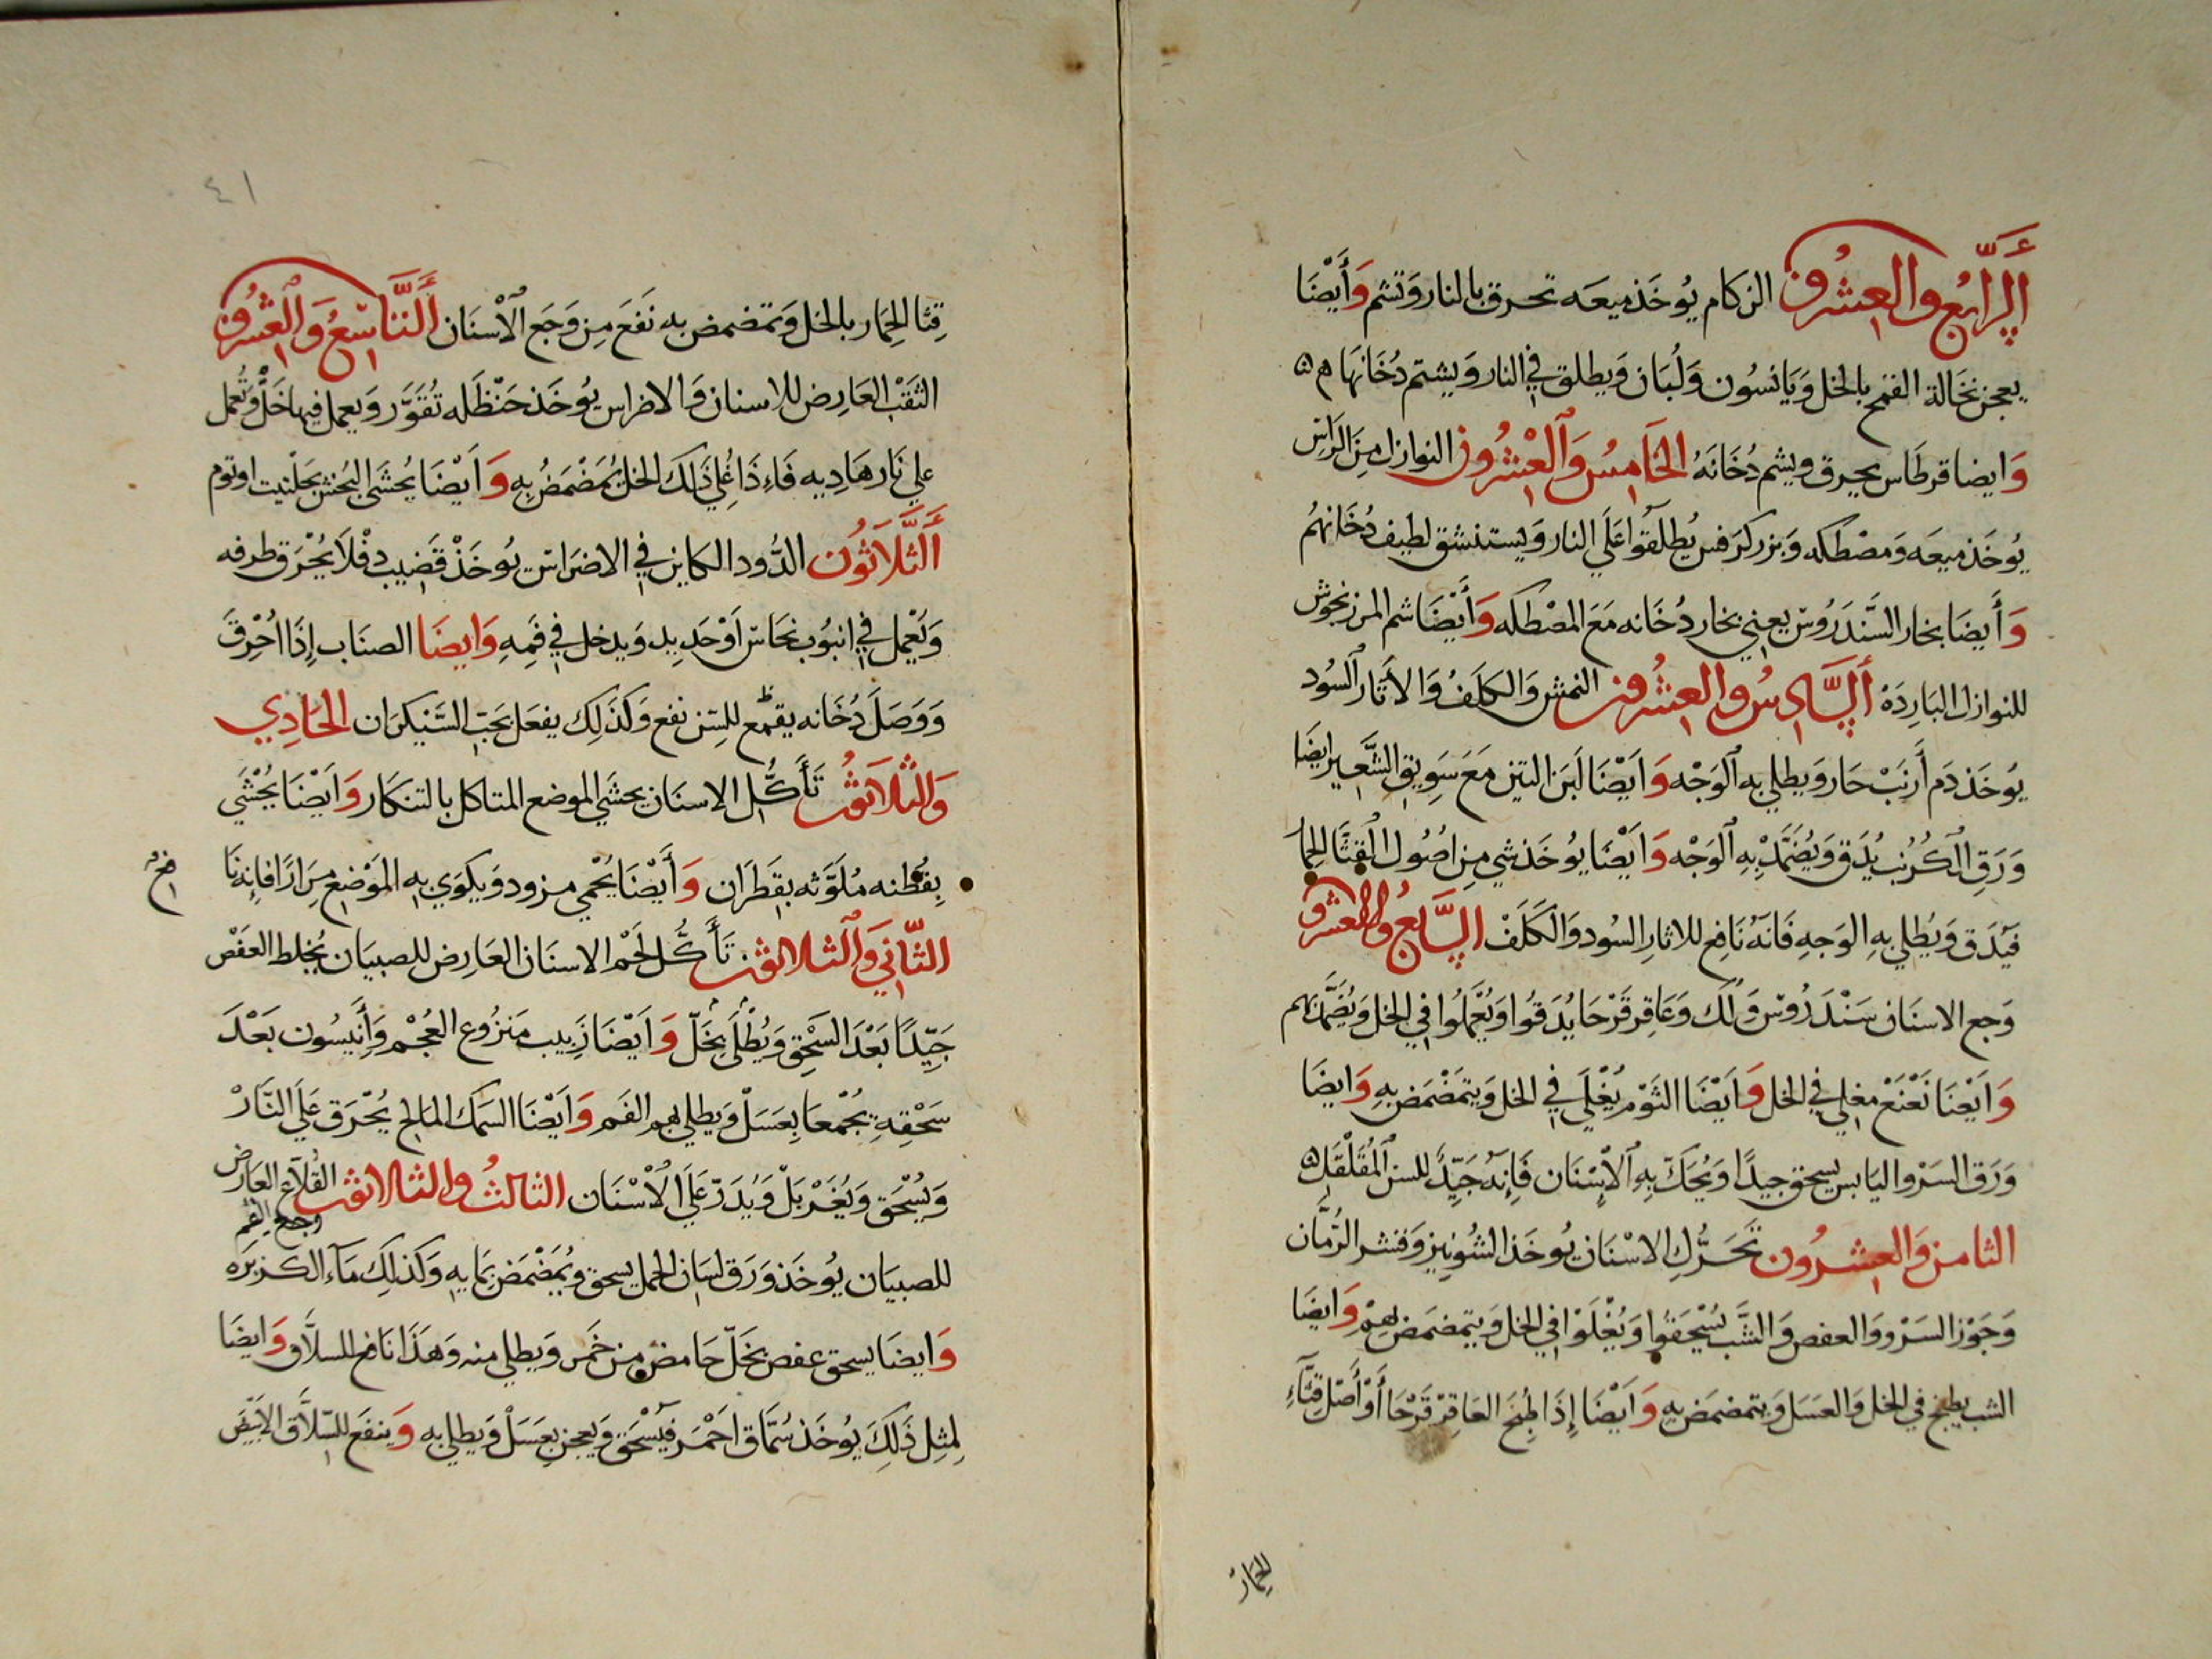 الرَّابِعُ والعِشرُون الزكام يُوخَذ ميعَه تحرق بالنار وَتشم وَأَيْضَا
يعجن نخَالة القمح بالخل وَيَانسُون وَلُبَان وَيطلق في النار وَيشتم دُخَانهَا
وَايضا قرطَاس يحرق ويشم دُخَانَهُ الخَامِسُ وَالْعِشْرُون النوازل مِنَ الرَاس
يُوخَذ ميعَه وَمصْطكَه وَبزر كرَفس يُطلَقُوا عَلَي النار وَيستنشق لطيف دُخَانهُم
وَأَيضَا بخار السَّندَرُوس يعني بخار دُخَانه مَعَ المصْطكَه وَأَيْضَا شم المرزنجوش
للنوازل البَارِدَهْ السَّادِسُ والعشرُون النمش وَالكلَفُ وَالأَثَار السُود
يُوخَذ دَم أَرنَبْ حَار وَيطلي به الوَجْه وَايَضْا لَبَن التين مَعَ سَوِيق الشَّعير ايضَا
وَرَقِ الكُرُنب يُدَق وَيُضَمَّدْ بِهِ الوَجْه وَايَضْا يُوخَذ شي مِن اصُول القِثَّا الحِمار
فَيَدَق وَيُطلي بهِ الوَجهِ فَانَهُ نَافع للاثارِ السُود وَالكَلَفْ السَّابعُ والعشرُون
وَجع الاسنَان سَنْدَرُوس وَلَك وَعَاقِر قَرْحَا يُدَقُوا وَيُعَْمَلُوا في الخل وَيُضَمَّد بهم
وَايَضْا نَعْنَعْ مغلي في الخل وَايَضْا الثَوْم يُغْلَي في الخل وَيتمَضْمَض بهِ وَايضَا
وَرَق السَرْو اليَابس يسحق جيدًا وَيُحَكّ بِهِ الأسْنَان فَإِنهُ جَيِّدً للسن المُقَلْقَل
الثامن وَالعشرُون تَحَرُّكِ الاسْنَان يُوخَذ الشُونيز وَقشر الرُمَّان
وَجَوْز السَرْو وَالعفص وَالشَّب يُسْحَقُوا وَيُغْلَوْا في الخل وَيتمضمَض بِهِمْ وَايضَا
الشب يطبخ في الخل وَالعَسَل وَيتمضمَض بهِ وَايَضْا إِذَا طُبِخَ العَاقِرْقَرْحَا أَوْ أَصْل قِثَّاءِ
الحِمَارْ
٤١
قِثا الحِمَار بالخل وَتمَضمض به نَفَعَ مِن وَجَع الأَسْنَان التَّاسِعُ وَالعشْرُون
الثَقْبْ العَارِض للاسنان وَالاضراس يُوخَذ حَنْظَله تُقَوَّر وَيعمل فيها خَلّ وَتُعْمل
علي نَار هَادِيه فَاءِذَا غُلِيَ ذَلكَ الخل يُمَضْمَضُ بِهِ وَايَضْا يُحشَي البُخش بحَلْتيت اوتوم
الثَّلَاثُون الدُود الكاين في الاضرَاس يُوخَذْ قَضيب دفْلَا يُحْرَق طرفه
وَيُعْمل في انبُوب نحَاس أَوْحَدِيد وَيدخل في فَمِهِ وَايضَا الصنَاب إِذَا احْرِقَ
وَوَصَلَ دُخَانه بقمْع للسِّن نفع وَكَذَلِك يفعَل بحَبّ السَّيْكرَان الحَادِي
وَالثَّلَاثُون تَأَكُّل الاسنَان يحشَي الموضع المتاكل بالتنكَار وَايَضْا يُحْشَي
بِقُطْنه مُلَوَّثه بقَطرَان وَأَيْضَا يُحْمي مرود وَيكوَي بهِ المَوْضع مِرَارًا فَإِنه نَا
فعْ
الثَّانِيَ وَالثلاثون تَأَكُّل لَحْم الاسنَان العَارِض للصبيَان يُخلط العَفْص
جَيِّدًا بَعْدَ السَحْقِ وَيُطْلَي بخَلّ وَايَضْا زَبِيب مَنزُوع العُجْم وَأَنيسُون بَعْدَ
سَحْقِهِ يُجْمعَا بِعَسَلْ وَيطلي بهم الفَم وَايَضْا السَمَك المَالح يُحْرَق عَلَي النَّارْ
وَيُسْحَق وَيُغَرْبَلْ وَيُدَرّ عَلَي الأسْنَان الثالثُ والثلاثُون القُلَاع العَارِض
وجع الفم
للصبيَان يُوخَذ وَرَق لسَان الحَمل يسحق وَيُمَضْمَض بمَايهِ وَكَذَلِكَ مَآء الكزبَره
وَايضا يسحق عفص بخَلّ حَامض من خَمر وَيطلي منه وَهَذَا نَافع للسلَّاق وَايضَا
لمِثِل ذَلكَ يُوخَذ سُمَّاق احْمَر فَيُسْحَق وَيعجن بِعَسَلْ وَيطلي به وَينفَع للسَلَّاق الأَبيَض